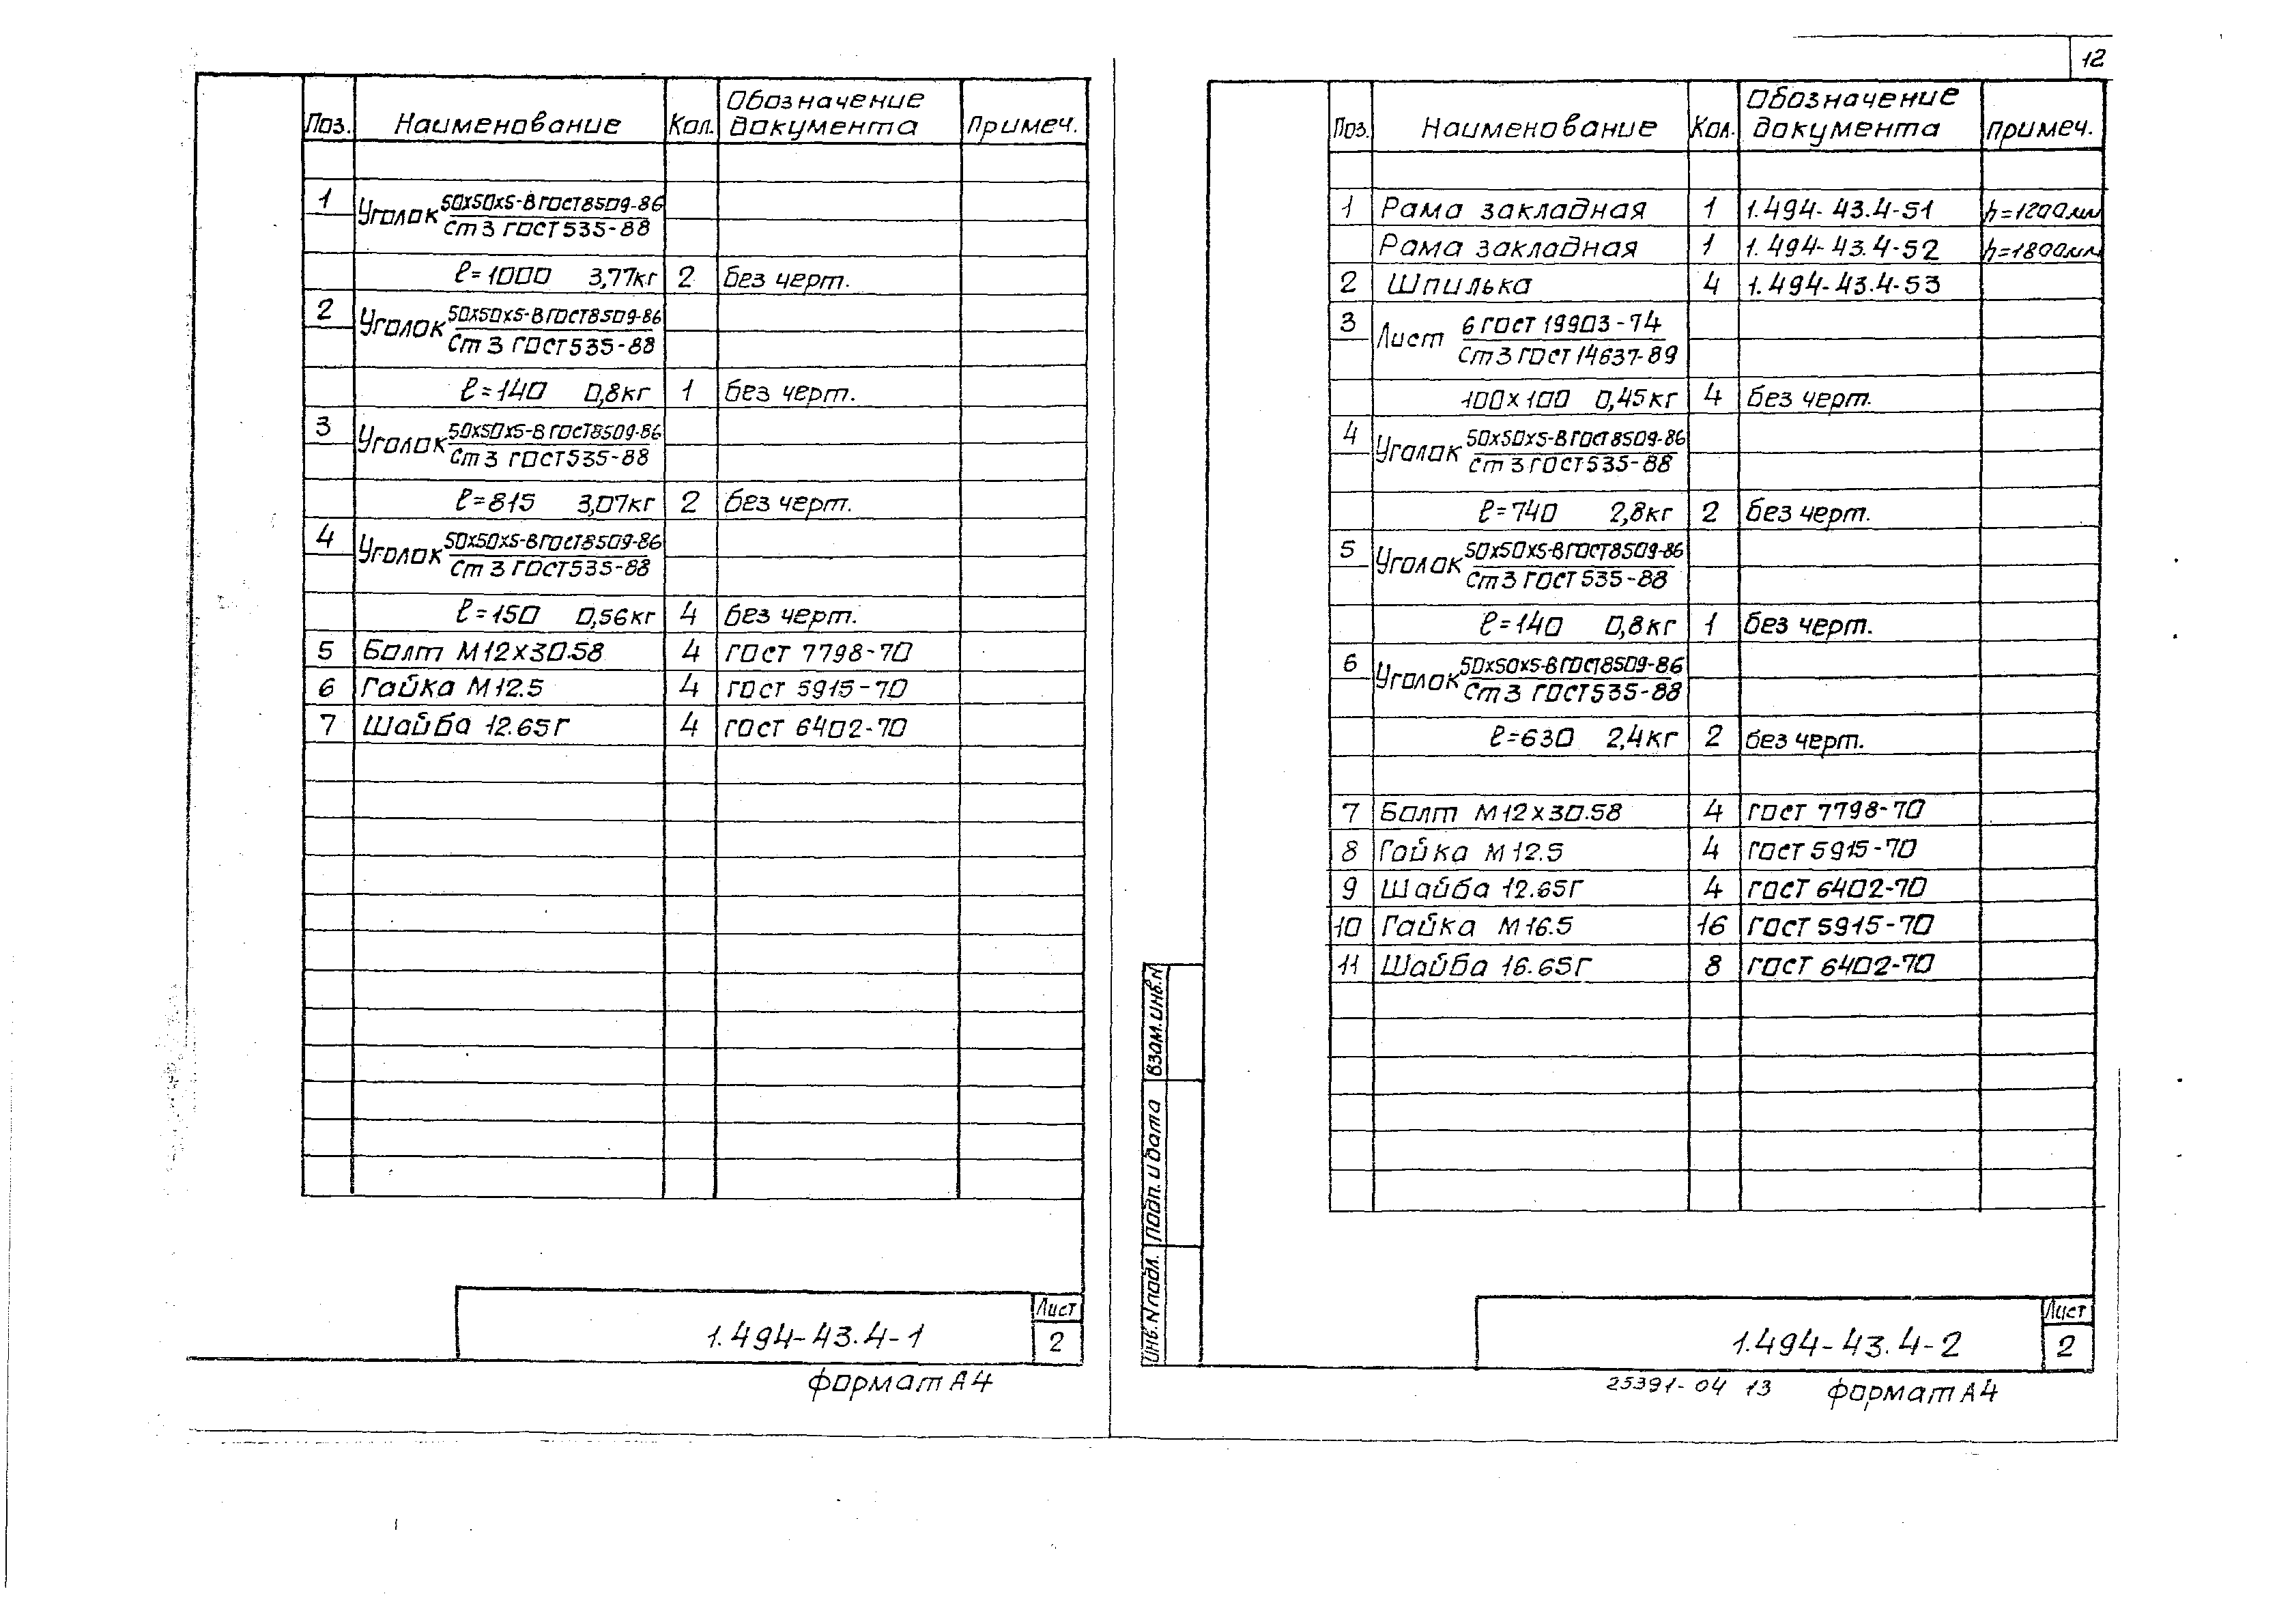 12
Поз. Наименование Кол. Обозначение документа Примеч.
1 Уголок 50х50х5-В ГОСТ 8509-86
Ст3 ГОСТ 535-88
ℓ=1000 3,77кг 2 без черт.
2 Уголок 50х50х5-В ГОСТ 8509-86
Ст3 ГОСТ 535-88
ℓ=140 0,8кг 1 без черт.
3 Уголок 50х50х5-В ГОСТ 8509-86
Ст3 ГОСТ 535-88
ℓ=815 3,07кг 2 без черт.
4 Уголок 50х50х5-В ГОСТ 8509-86
Ст3 ГОСТ 535-88
ℓ=150 0,56кг 4 без черт.
5 Болт М12х30.58 4 ГОСТ 7798-70
6 Гайка М12.5 4 ГОСТ 5915-70
7 Шайба 12.65Г 4 ГОСТ 6402-70
1.494-43.4-1
Лист
2
формат А4
Поз. Наименование Кол. Обозначение документа Примеч.
1 Рама закладная 1 1.494-43.4-51 h=1200мм
Рама закладная 1 1.494-43.4-52 h=1800мм
2 Шпилька 4 1.494-43.4-53
3 Лист 6 ГОСТ 19903-74
Ст3 ГОСТ 14637-89
100х100 0,45кг 4 без черт.
4 Уголок 50х50х5-В ГОСТ 8509-86
Ст3 ГОСТ 535-88
ℓ=740 2,8кг 2 без черт.
5 Уголок 50х50х5-В ГОСТ 8509-86
Ст3 ГОСТ 535-88
ℓ=140 0,8кг 1 без черт.
6 Уголок 50х50х5-В ГОСТ 8509-86
Ст3 ГОСТ 535-88
ℓ=630 2,4кг 2 без черт.
7 Болт М12х30.58 4 ГОСТ 7798-70
8 Гайка М12.5 4 ГОСТ 5915-70
9 Шайба 12.65Г 4 ГОСТ 6402-70
10 Гайка М16.5 16 ГОСТ 5915-70
11 Шайба 16.65Г 8 ГОСТ 6402-70
Взам.инв.N
Подп. и дата
Инв.N подл.
1.494-43.4-2
Лист
2
25391-04 13 формат А4